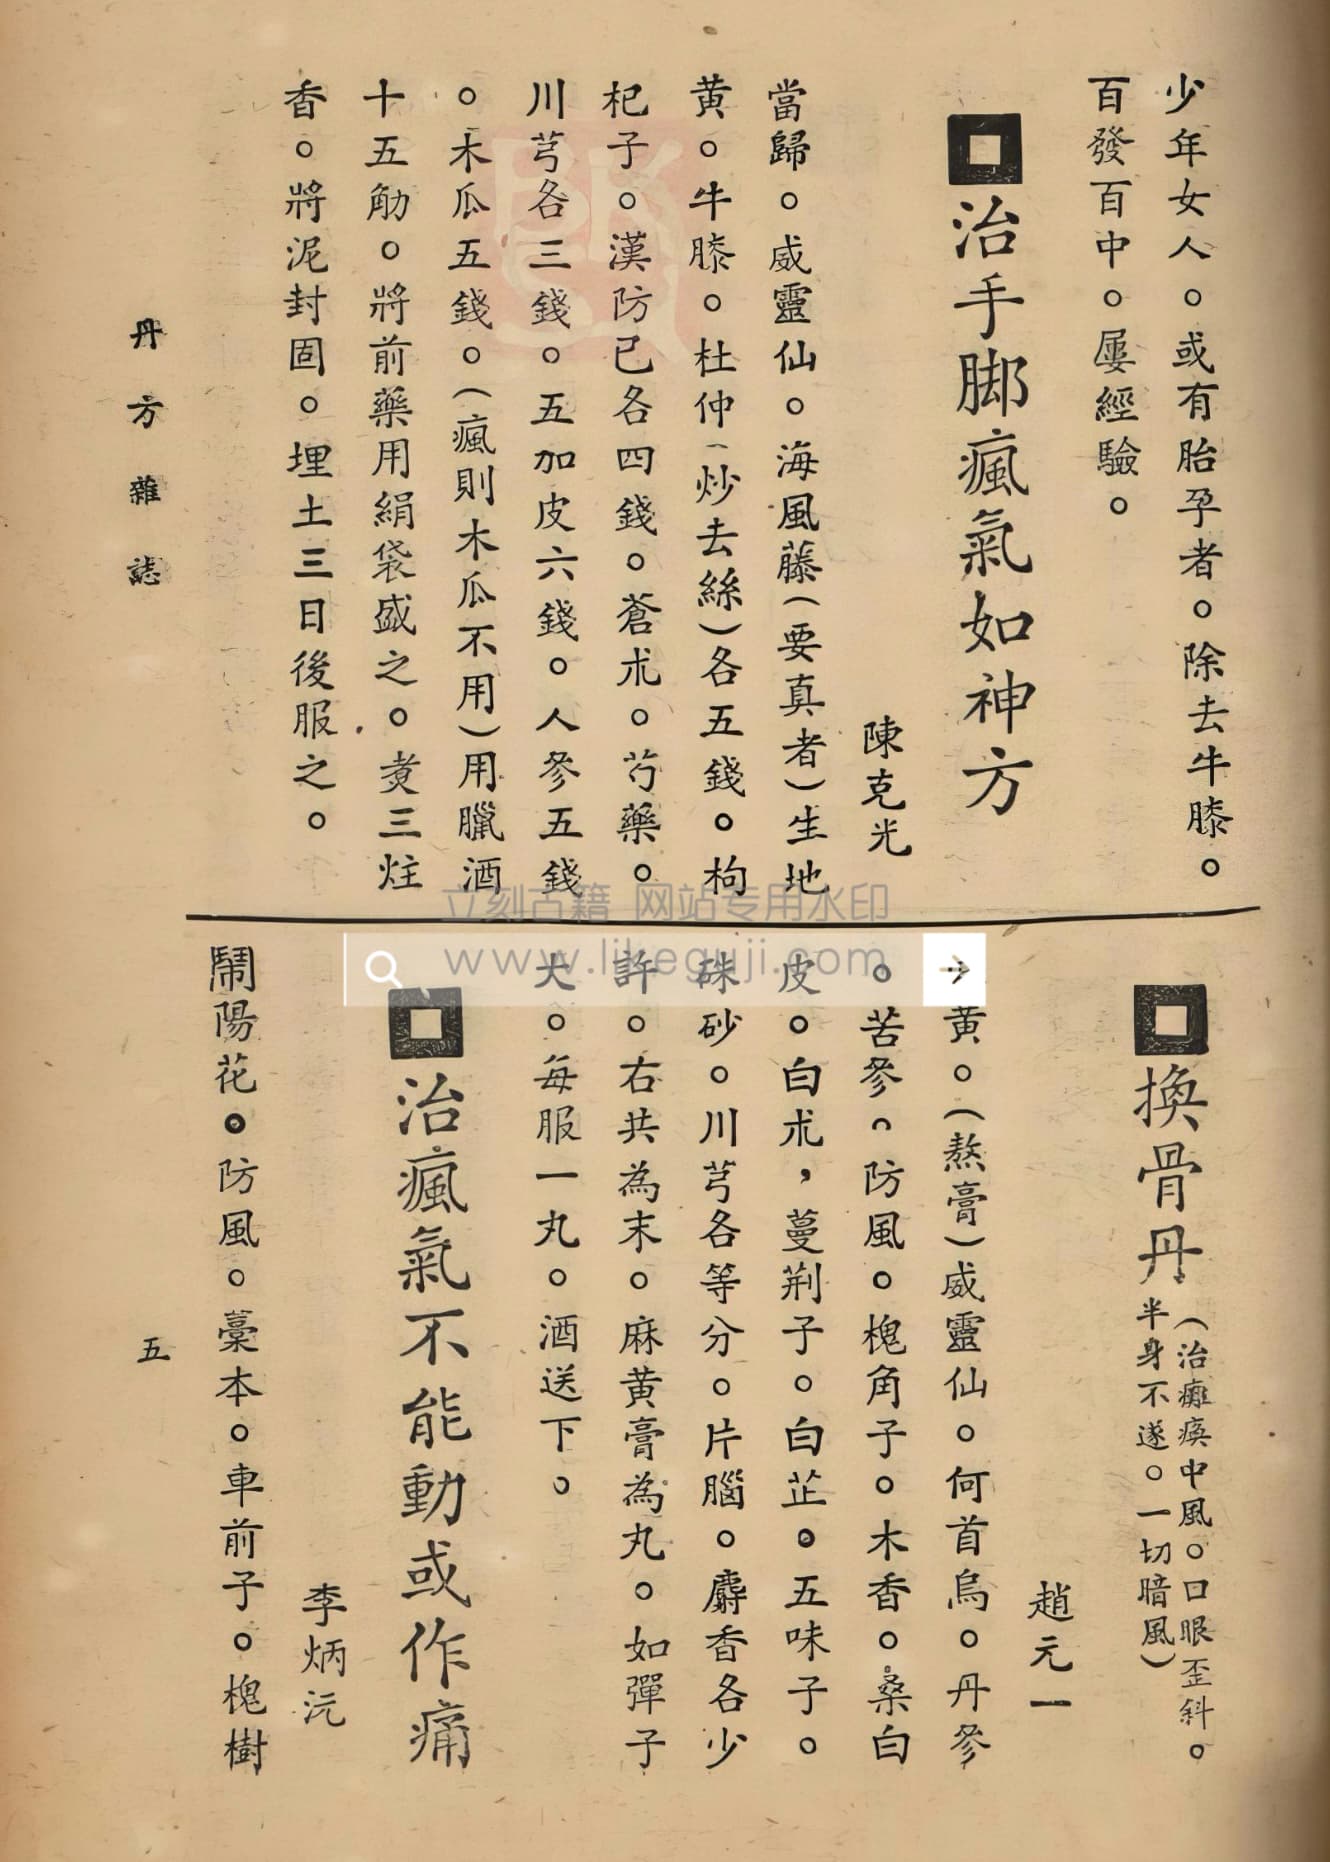 少年女人。或有胎孕者。除去牛膝。
百發百中。屢經驗。
治手脚瘋氣如神方
陳克光
當歸。威靈仙。海風藤(要真者)生地
黄。牛膝。杜仲(炒去絲)各五錢。枸
杞子。漢防已各四錢。蒼朮。芍藥。
川芎各三錢。五加皮六錢。人參五錢
。木瓜五錢。(瘋則木瓜不用)用臘酒
十五觔。將前藥用絹袋盛之。煑三炷
香。將泥封固。埋土三日後服之。
換骨丹
(治癱瘓中風。口眼歪斜。
半身不遂。一切暗風)
趙元一
黄。(熬膏)威靈仙。何首烏。丹參
。苦參。防風。槐角子。木香。桑白
皮。白朮，蔓荆子。白芷。五味子。
硃砂。川芎各等分。片腦。麝香各少
許。右共為末。麻黄膏為丸。如彈子
大。每服一丸。酒送下。
治瘋氣不能動或作痛
李炳沅
鬧陽花。防風。藁本。車前子。槐樹
丹方雜誌
五
立刻古籍 网站专用水印
www.likeguji.com